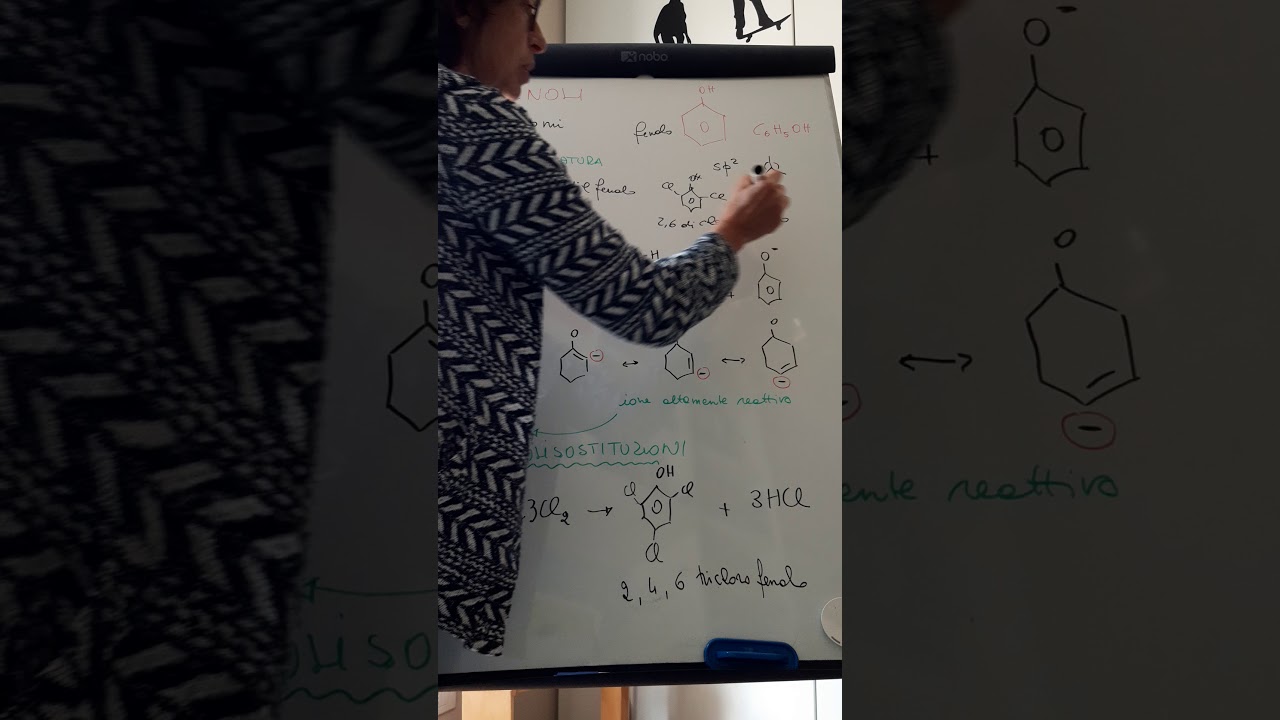 nobo
NOLI
OH
fenolo
C6H5OH
ATURA
sp²
fenolo
Cl
Cl
2,6 di
H
O⁻
+
O
−
↔
O
−
↔
O
−
ione altamente reattivo
LISOSTITUZIONI
OH
Cl
Cl
3Cl2 → + 3HCl
Cl
2, 4, 6 tricloro fenolo
O⁻
+
O
↔
−
nte reattivo
LISO